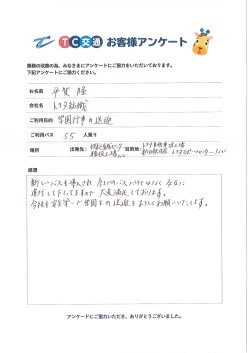 TC交通 お客様アンケート
業務の改善の為、みなさまにアンケートにご協力をいただいております。
下記アンケートにご協力ください。
お名前 平賀 隆
会社名 トヨタ紡織
ご利用目的 学園行事の送迎
ご利用バス 55 人乗り
場所 出発先： 目的地：
感想
新しいバスを導入され、
運行して下さてますので 大変満足しております。
今後も安全第一で学園生の送迎をよろしくお願いいたします。
アンケートにご協力いただき、ありがとうございました。